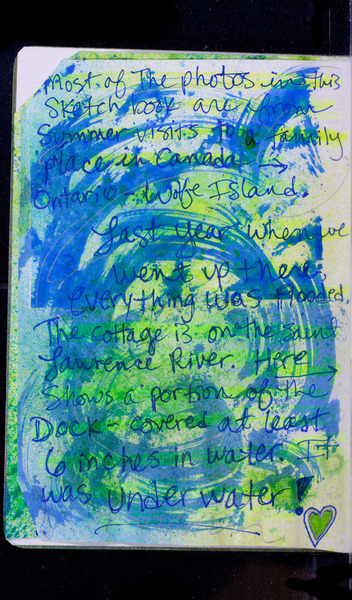 most of The photos in this
Sketch book are from
Summer visits to a family
place in Canada →
Ontario - Wolfe Island.
Last year when we
went up there,
everything was flooded.
The cottage is on the Saint
Lawrence River. Here →
Shows a portion of the
Dock - covered at least
6 inches in water. It
was under water!